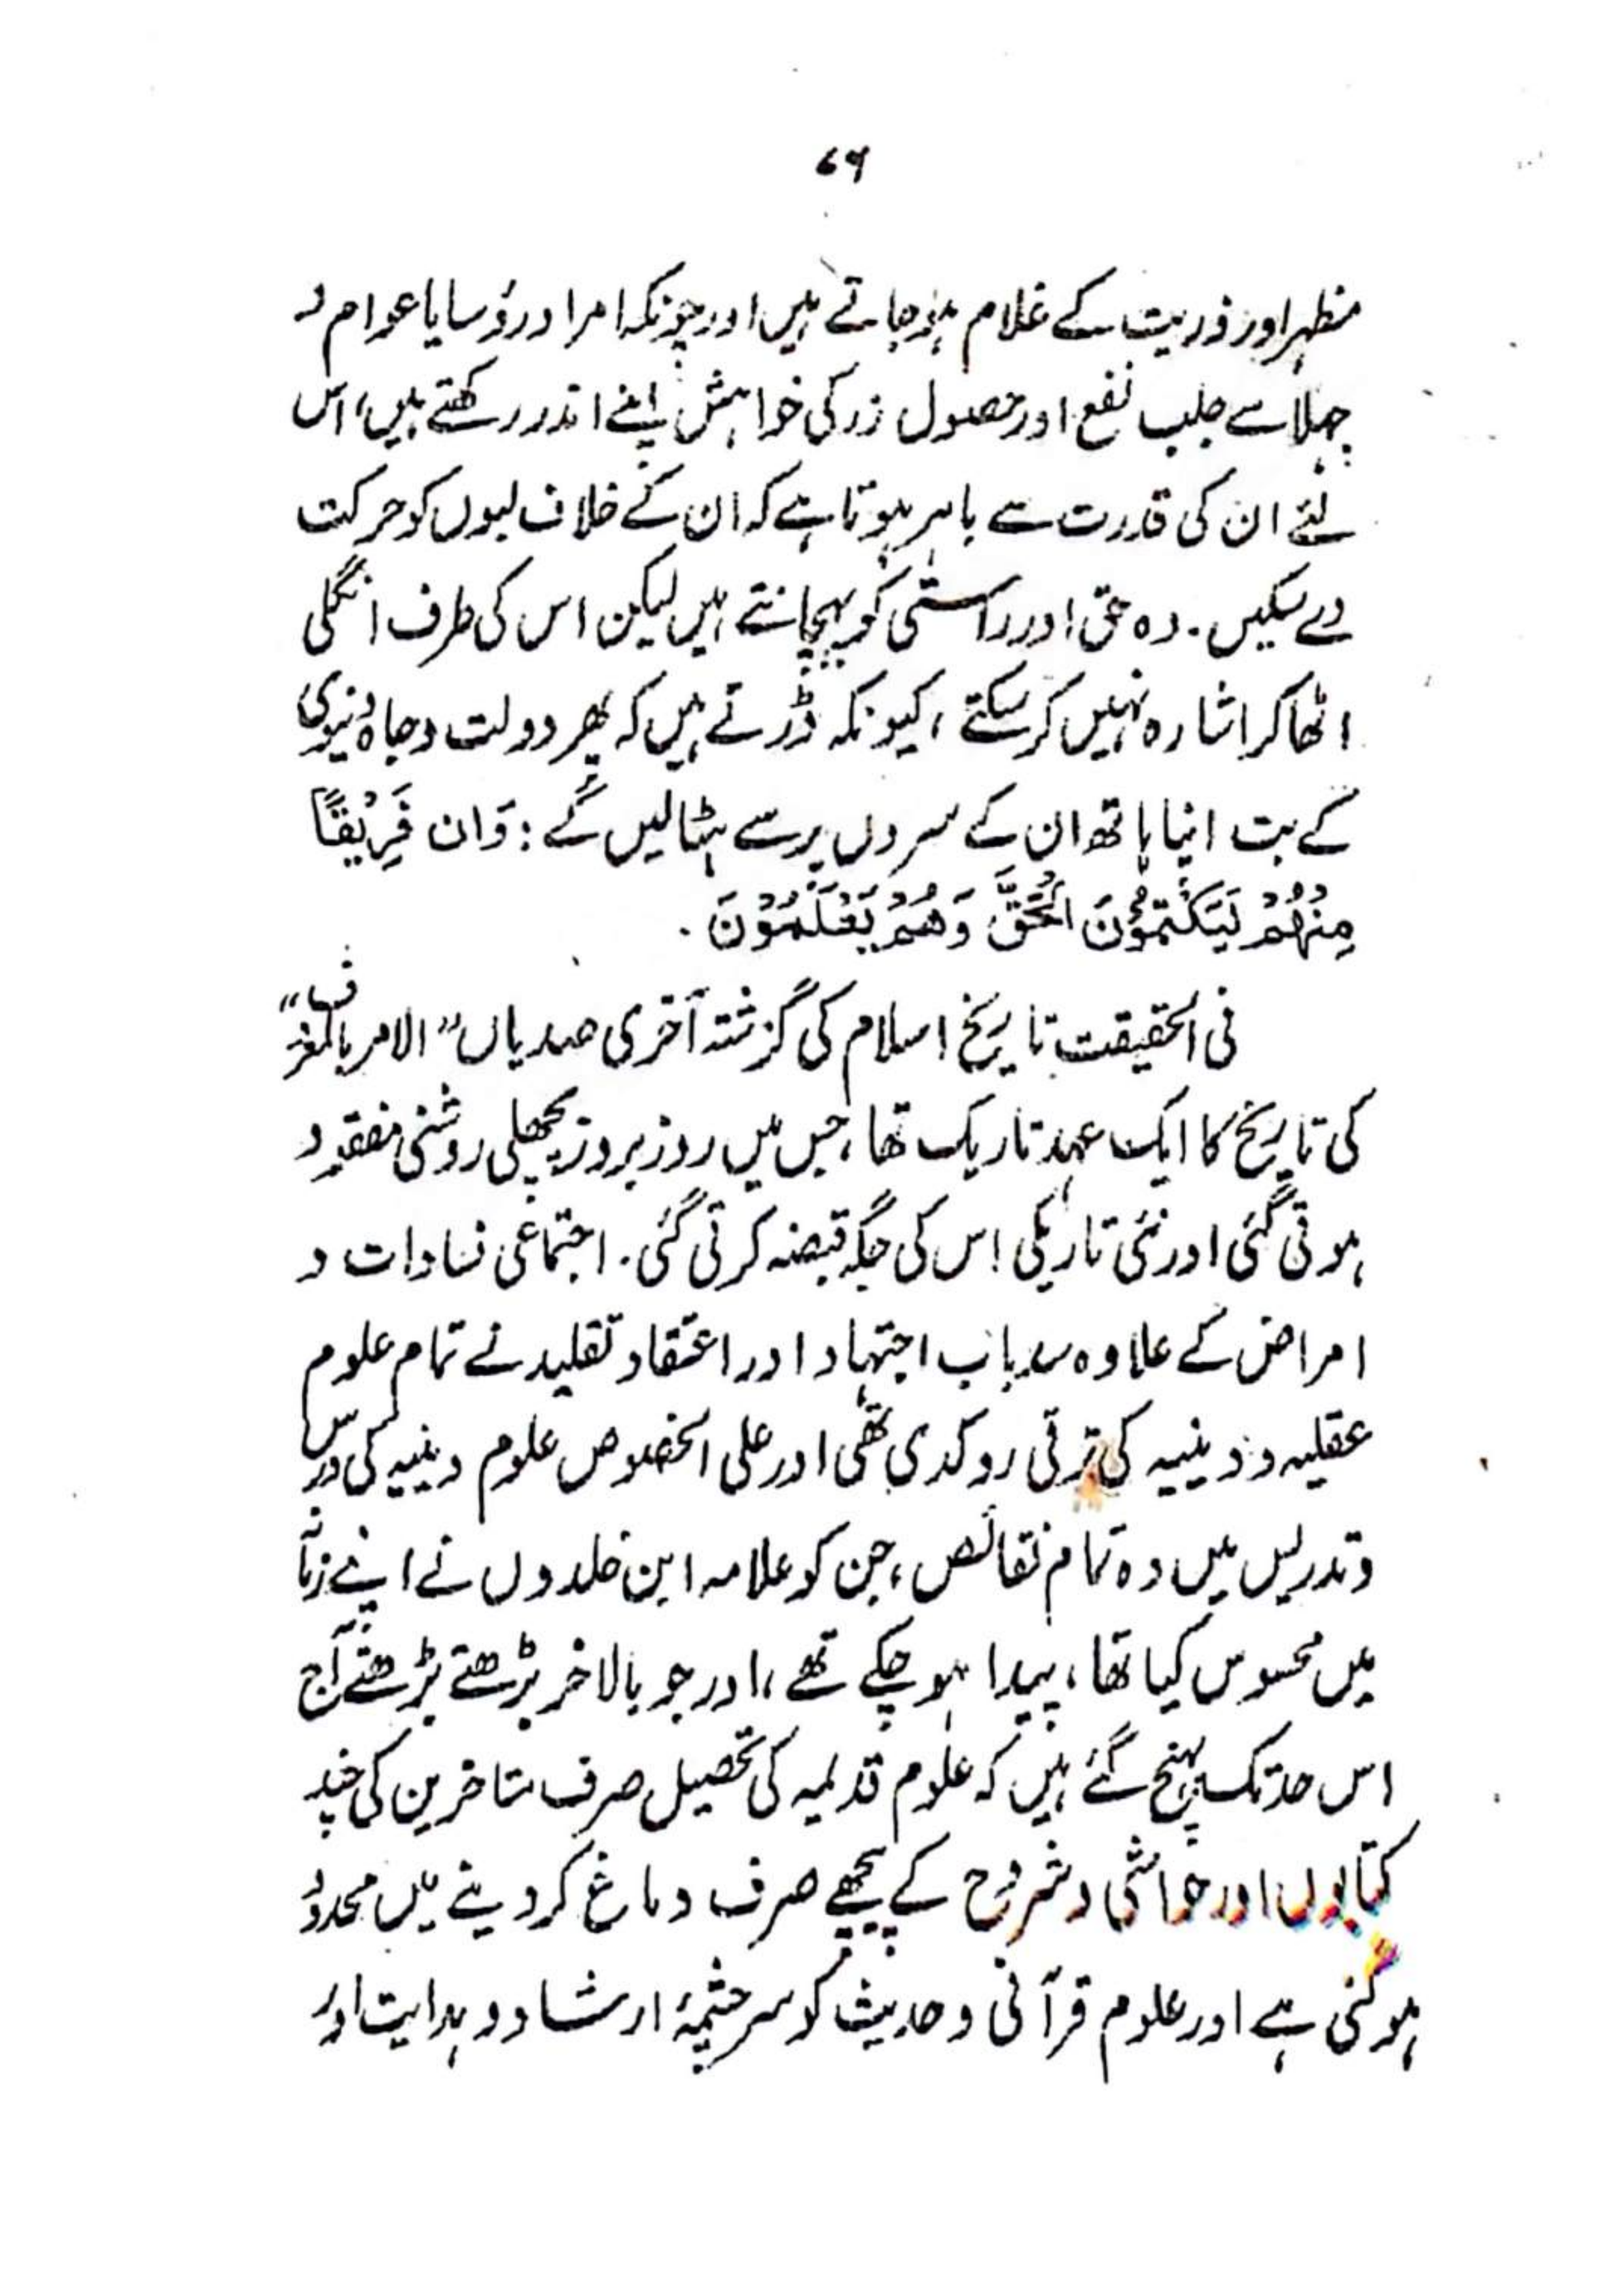 ۷۶
مظہر اور ذریت کے غلام ہو جاتے ہیں اور چونکہ امرا و رؤسا یا عوام و
جہلا سے جلب نفع اور حصول زر کی خواہش اپنے اندر رکھتے ہیں، اس
لئے ان کی قدرت سے باہر ہوتا ہے کہ ان کے خلاف لبوں کو حرکت
دے سکیں۔ وہ حق اور راستی کو پہچانتے ہیں لیکن اس کی طرف انگلی
اٹھا کر اشارہ نہیں کر سکتے، کیونکہ ڈرتے ہیں کہ پھر دولت و جاہ دنیوی
کے بت اپنا ہاتھ ان کے سروں پر سے ہٹا لیں گے: وَان فَرِيْقًا
مِنْهُمْ لَيَكْتُمُوْنَ الْحَقَّ وَهُمْ يَعْلَمُوْنَ۔
فی الحقیقت تاریخ اسلام کی گزشتہ آخری صدیاں "الامر بالمعروف"
کی تاریخ کا ایک عہد تاریک تھا، جس میں روز بروز پچھلی روشنی مفقود
ہوتی گئی اور نئی تاریکی اس کی جگہ قبضہ کرتی گئی۔ اجتماعی فسادات و
امراض کے علاوہ سد باب اجتہاد اور اعتقاد تقلید نے تمام علوم
عقلیہ و دینیہ کی ترقی روکدی تھی اور علی الخصوص علوم دینیہ کی درس
و تدریس میں وہ تمام نقائص، جن کو علامہ ابن خلدوں نے اپنے زمانہ
میں محسوس کیا تھا، پیدا ہو چکے تھے، اور جو بالاخر بڑھتے بڑھتے آج
اس حد تک پہنچ گئے ہیں کہ علوم قدیمہ کی تحصیل صرف متاخرین کی چند
کتابوں اور حواشی و شروح کے پیچھے صرف دماغ کر دینے میں محدود
ہو گئی ہے اور علوم قرآنی و حدیث کو سرچشمۂ ارشاد و ہدایت اور